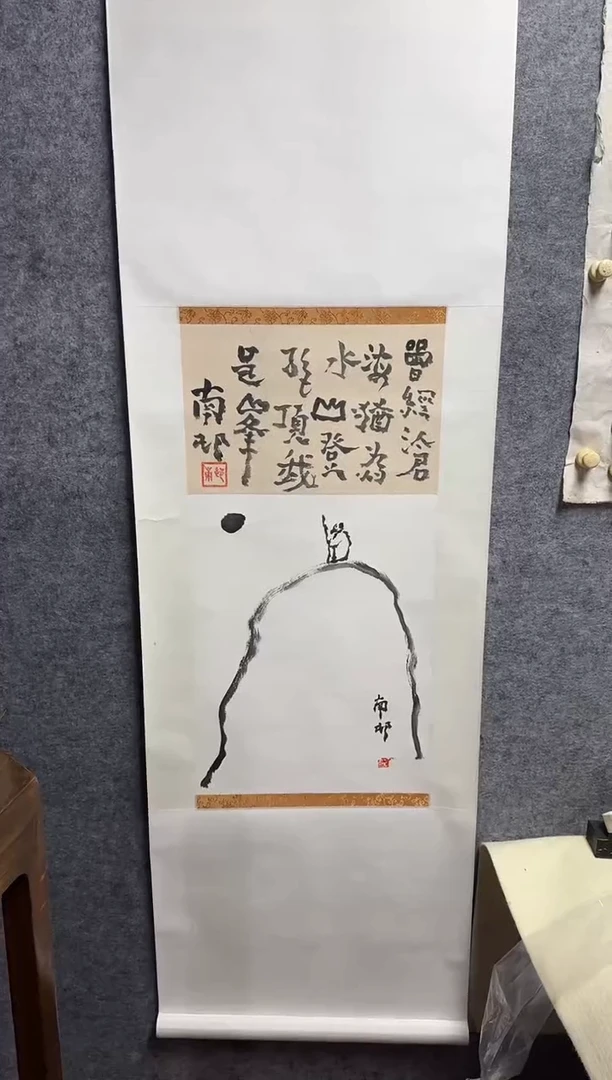 曾經滄
海猶為
水山登
絕頂我
是峯
南邨
南邨